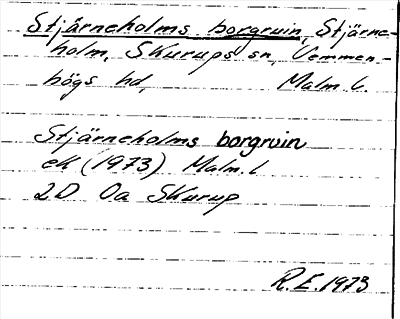 Stjärneholms borgruin, Stjärne-
holm, Skurups sn, Vemmen-
högs hd, Malm. l.
Stjärneholms borgruin
ek (1973) Malm. l
2D 0a Skurup
R.E. 1973